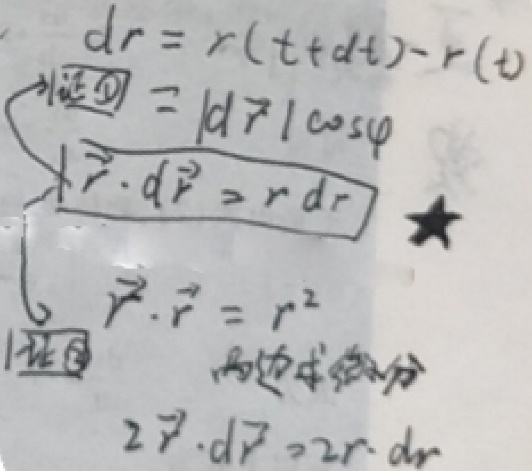 dr = r(t+dt)-r(t)
证① = |d\vec{r}| cosφ
\vec{r}·d\vec{r} = r dr
\vec{r}·\vec{r} = r²
证②
两边求微分
2\vec{r}·d\vec{r} = 2r·dr